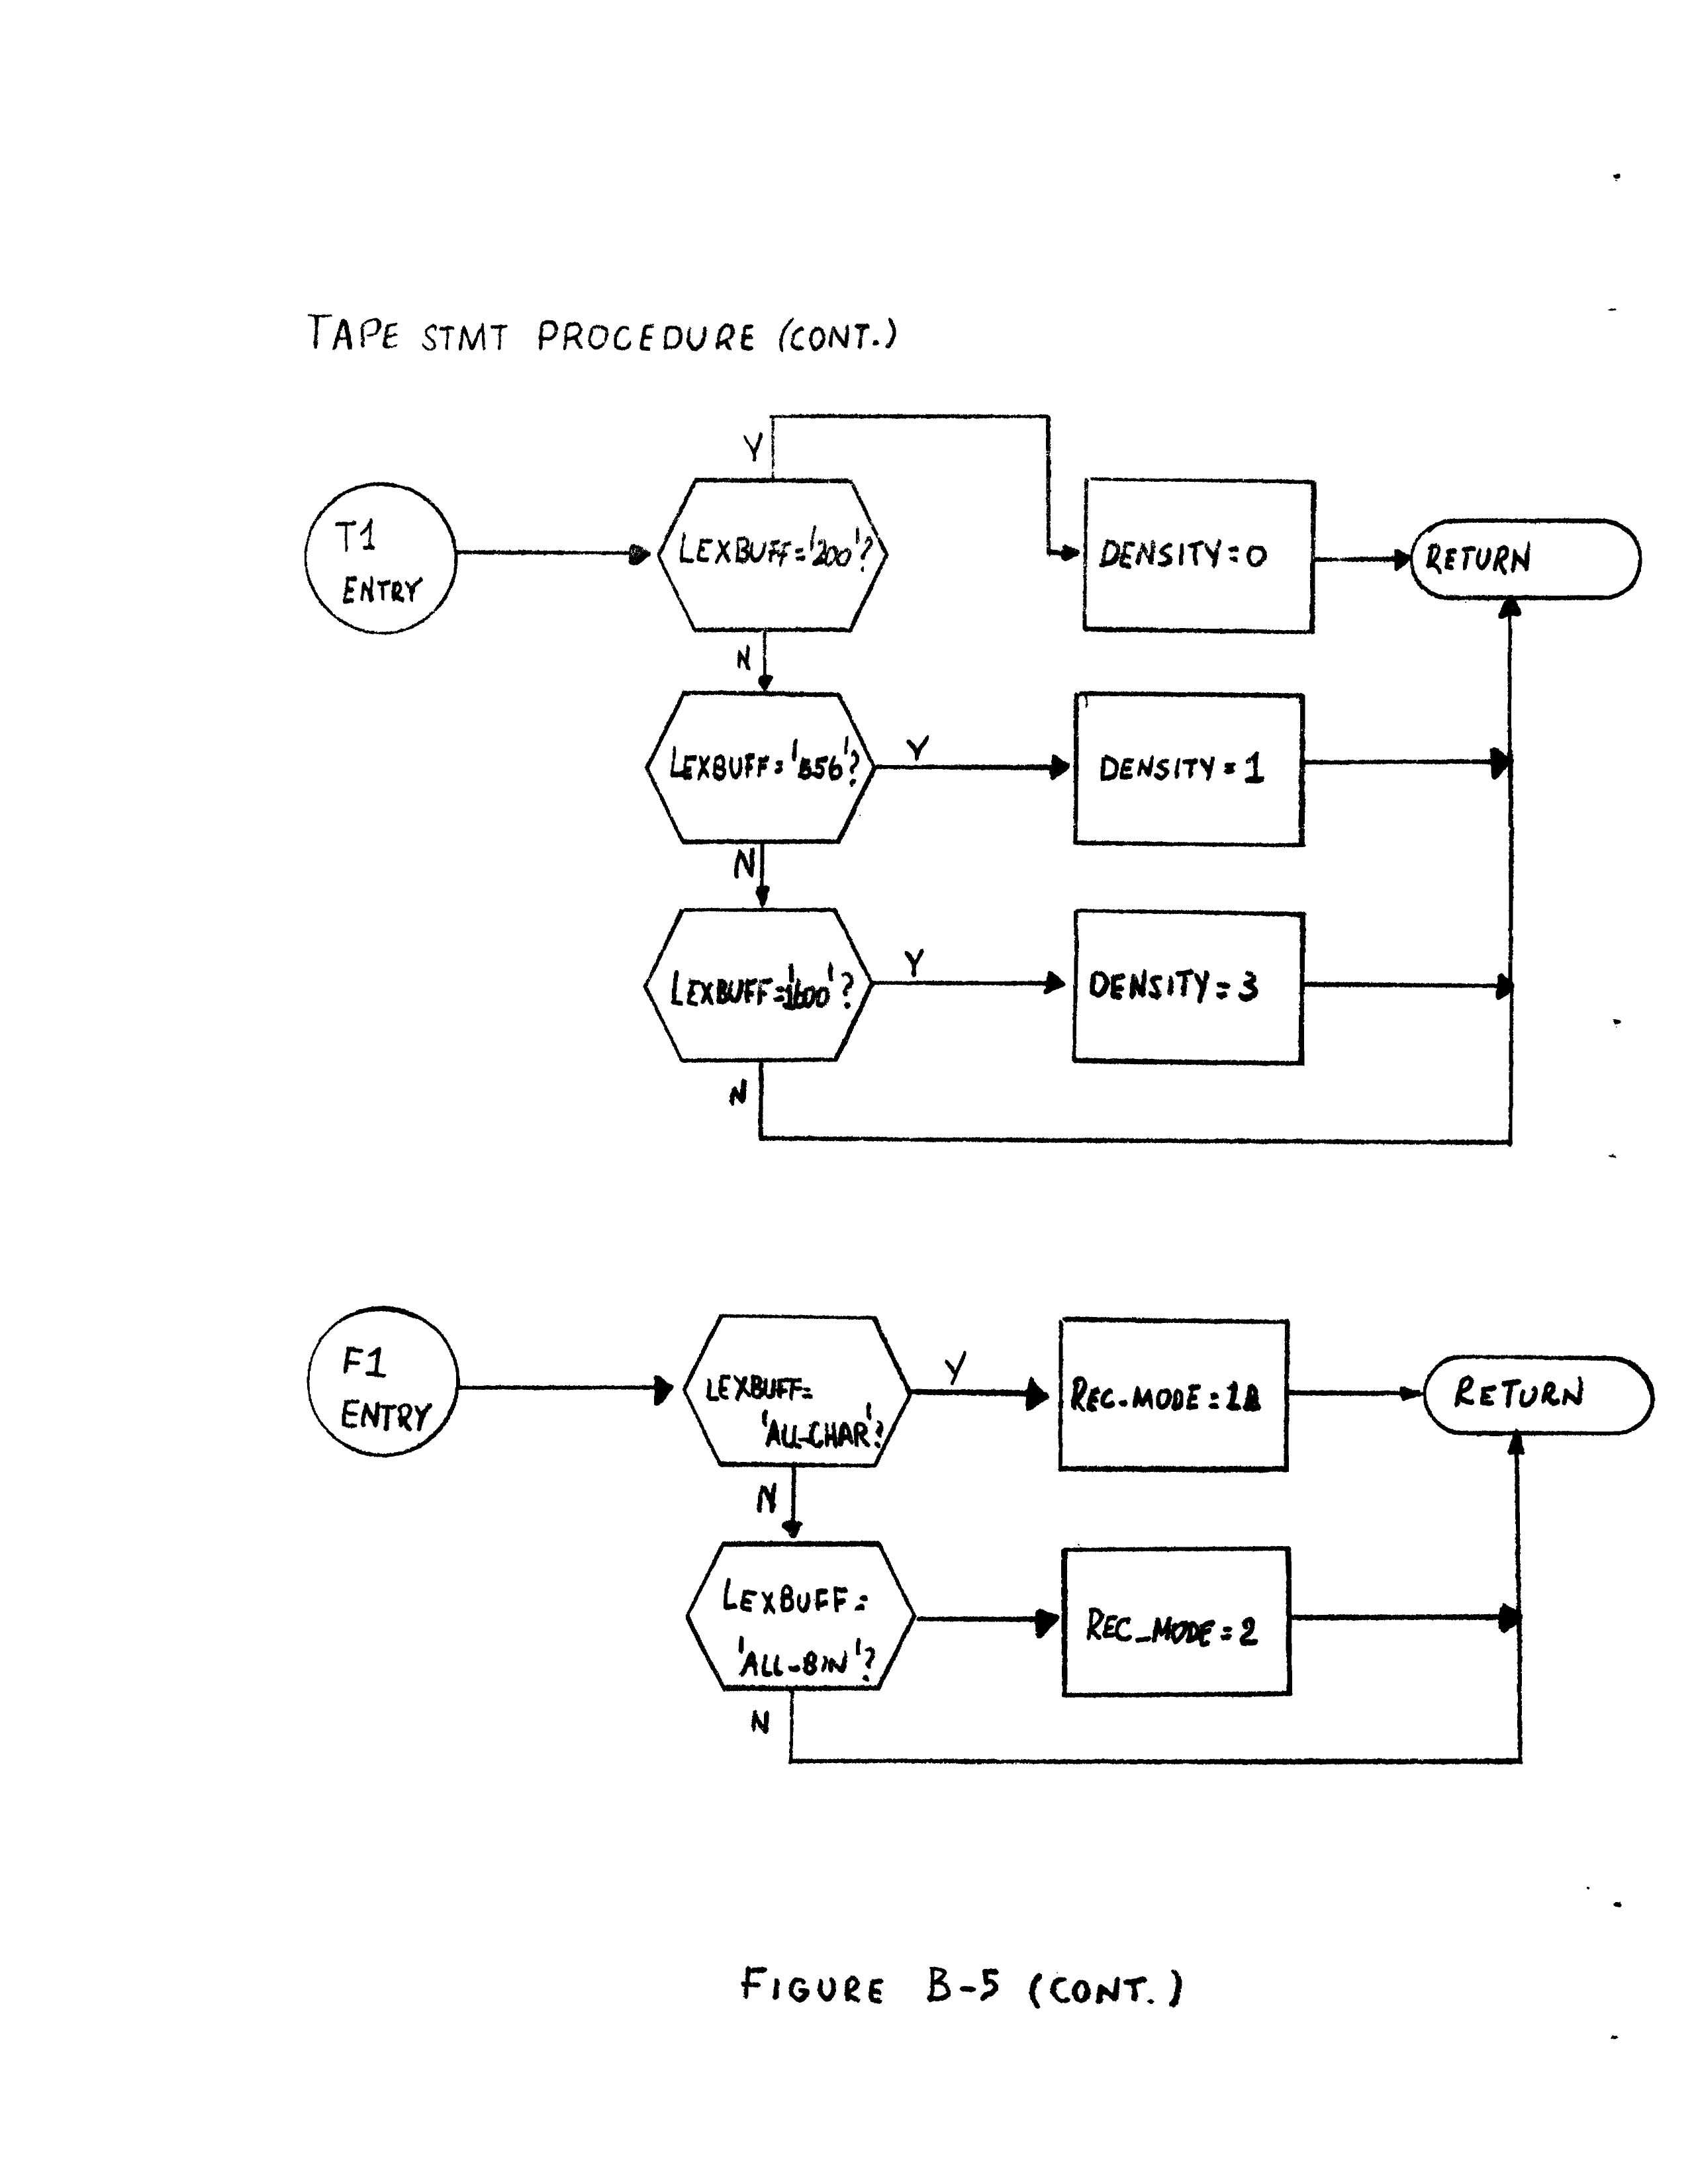 TAPE STMT PROCEDURE (CONT.)
Y
T1
ENTRY
LEXBUFF='200'?
DENSITY=0
RETURN
N
LEXBUFF='556'?
Y
DENSITY=1
N
LEXBUFF='1600'?
Y
DENSITY=3
N
F1
ENTRY
LEXBUFF=
'ALL-CHAR'?
Y
REC_MODE=
RETURN
N
LEXBUFF=
'ALL-BIN'?
REC_MODE=2
N
FIGURE B-5 (CONT.)